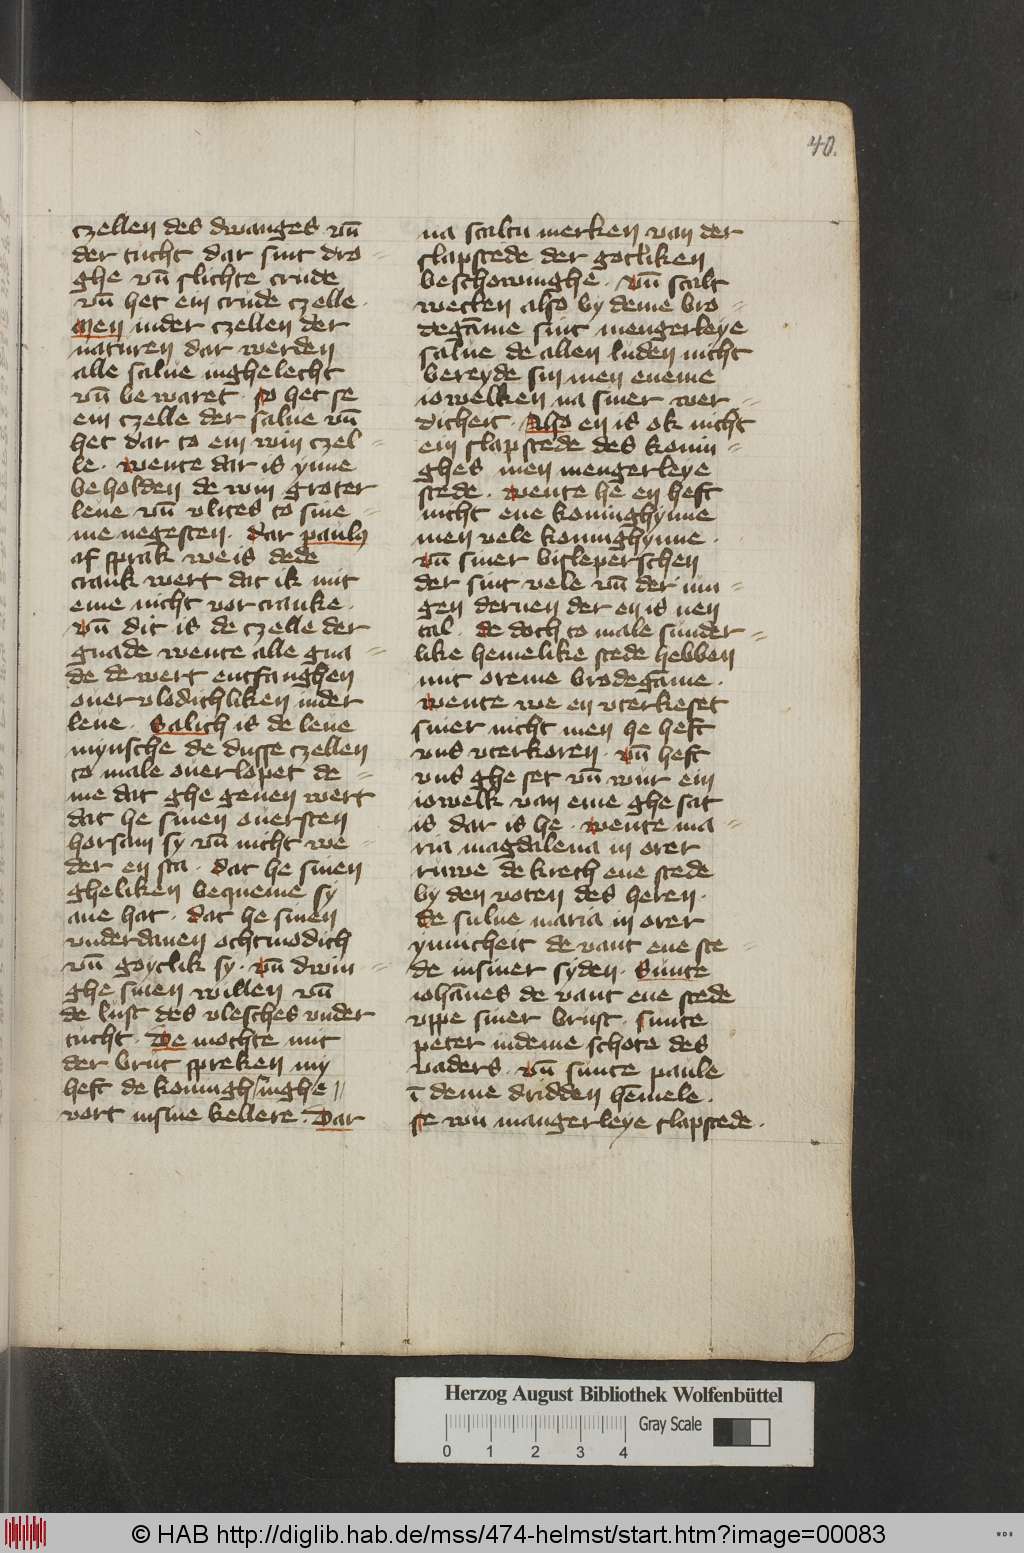 40.
czellen des dwanges vn̄
der tucht dar sint dro=
ghe vn̄ slichte crude
vn̄ het ein crude czelle.
Men inder czellen der
naturen dar werden
alle salue inghelecht
vn̄ be waret. so het se
ein czelle der salue vn̄
het dar to ein win czel=
le. wente dar is ynne
beholden de win groter
leue vn̄ vlites to sine=
me negesten. dar paulus
af sprak we is dede
crank wert dat ik mit
eme nicht vor cranke.
vn̄ dit is de czelle der
gnade wente alle gna=
de de wert entfanghen
ouer vlodichliken inder
leue. Salich is de leue
mynsche de dusse czellen
to male ouerlopet de=
me dat ghe geuen wert
dat he sinen ouersten
horsam sy vn̄ nicht we=
der en sta. dat he sinen
gheliken bequeme sy
ane hat. dat he sinen
vnderdanen ochtmodich
vn̄ goyclik sy. vn̄ dwin=
ghe sinen willen vn̄
de lust des vlesches vnder
tucht. De mochte mit
der brut spreken my
heft de koningh inghe//
vort in sine kellere. Dar
na scaltu merken van der
slapstede der gotliken
beschowinghe. vn̄ scalt
wetten also by deme bro=
degāme sint mengerleye
salue de allen luden nicht
bereyde sin men eneme
iowelken na siner wer=
dicheit. Also en is ok nicht
ein slapstede des konin=
ghes men mengerleye
stede. wente he en heft
nicht ene koninghynne
men vele koninghynne.
vn̄ siner bisleperschen
der sint vele vn̄ der iun=
gen dernen der en is nen
tal. de doch to male sunder=
like hemelike stede hebben
mit oreme brodegāme.
wente we en vterkeset
siner nicht men he heft
vns vterkoren. vn̄ heft
vns ghe set vn̄ wur ein
iowelk van eme ghe sat
is dar is he. wente ma=
ria magdalena in orer
ruwe de krech ene stede
by den voten des heren.
de sulue maria in orer
ynnicheit de vant ene ste=
de in siner syden. Sunte
iohānes de vant ene stede
vppe siner brust. sunte
peter in deme schote des
vaders. vn̄ sunte paule
ī deme dridden hēmele.
se wu mangerleye slapstede.
Herzog August Bibliothek Wolfenbüttel
Gray Scale
0 1 2 3 4
© HAB http://diglib.hab.de/mss/474-helmst/start.htm?image=00083